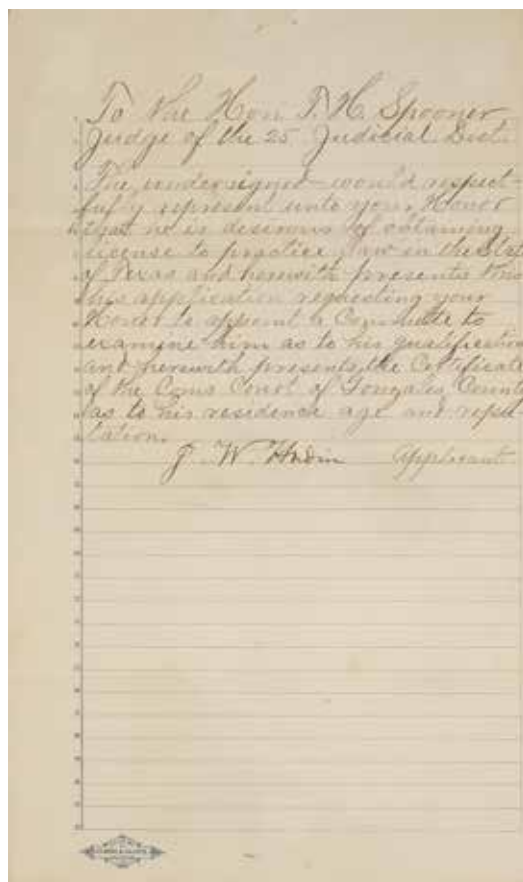 To the Hon T. H. Spooner
Judge of the 25 Judicial Dist.
The undersigned would respect-
fully represent unto your Honor
that he is desirous of obtaining
license to practice law in the State
of Texas and herewith presents this
his application requesting your
Honor to appoint a Committe to
examine him as to his qualification
and herewith presents the Certificate
of the Coms Court of Gonzales County
as to his residence age and repu
tation.
J. W. Hardin Applicant